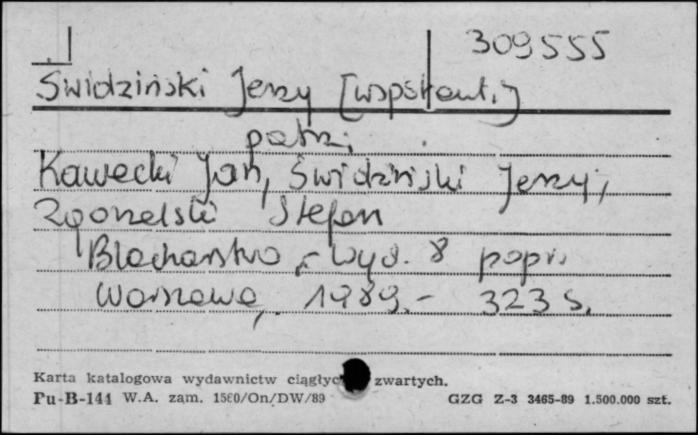 309555
Świdziński Jerzy [współaut.]
patrz:
Kawecki Jan, Świdziński Jerzy,
Zgorzelski Stefan
Blacharstwo.- Wyd. 8 popr.
Warszawa, 1989.- 323 s.
Karta katalogowa wydawnictw ciągłyc zwartych.
Pu-B-144 W.A. zam. 1560/On/DW/89 GZG Z-3 3465-89 1.500.000 szt.